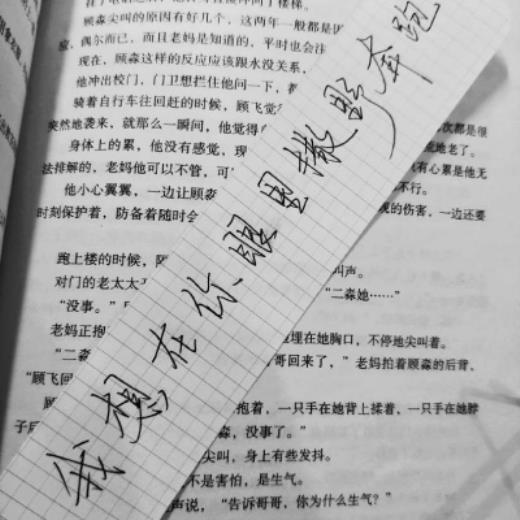 了电话之后，他转身直接冲向了楼梯。
顾淼尖叫的原因有好几个，这两年一般都是因
应，偶尔而已，而且老妈是知道的，平时也会注
现在，顾淼这样的反应应该跟水没关系，
他冲出校门，门卫想拦住他问一下，都
骑着自行车往回赶的时候，顾飞觉
突然地袭来，就那么一瞬间，他觉得 次都是很
身体上的累，他没有感觉，现 荒地老了。
法排解的，老妈他可以不管，可 有心累是他无
他小心翼翼，一边让顾淼 不行。
时刻保护着，防备着随时会 现的伤害，一边还要
跑上楼的时候， 叫声。
对门的老太太 “二淼她……”
“没事。”
老妈正抱 埋在她胸口，不停地尖叫着。
“二淼 哥回来了，”老妈拍着顾淼的后背，
“顾飞回
顾 抱着，一只手在她背上揉着，一只手在她脖
子后 淼，没事了。”
尖叫，身上有些发抖。
不是害怕，是生气。
声说，“告诉哥哥，你为什么生气？”
我想在你眼里撒野奔跑